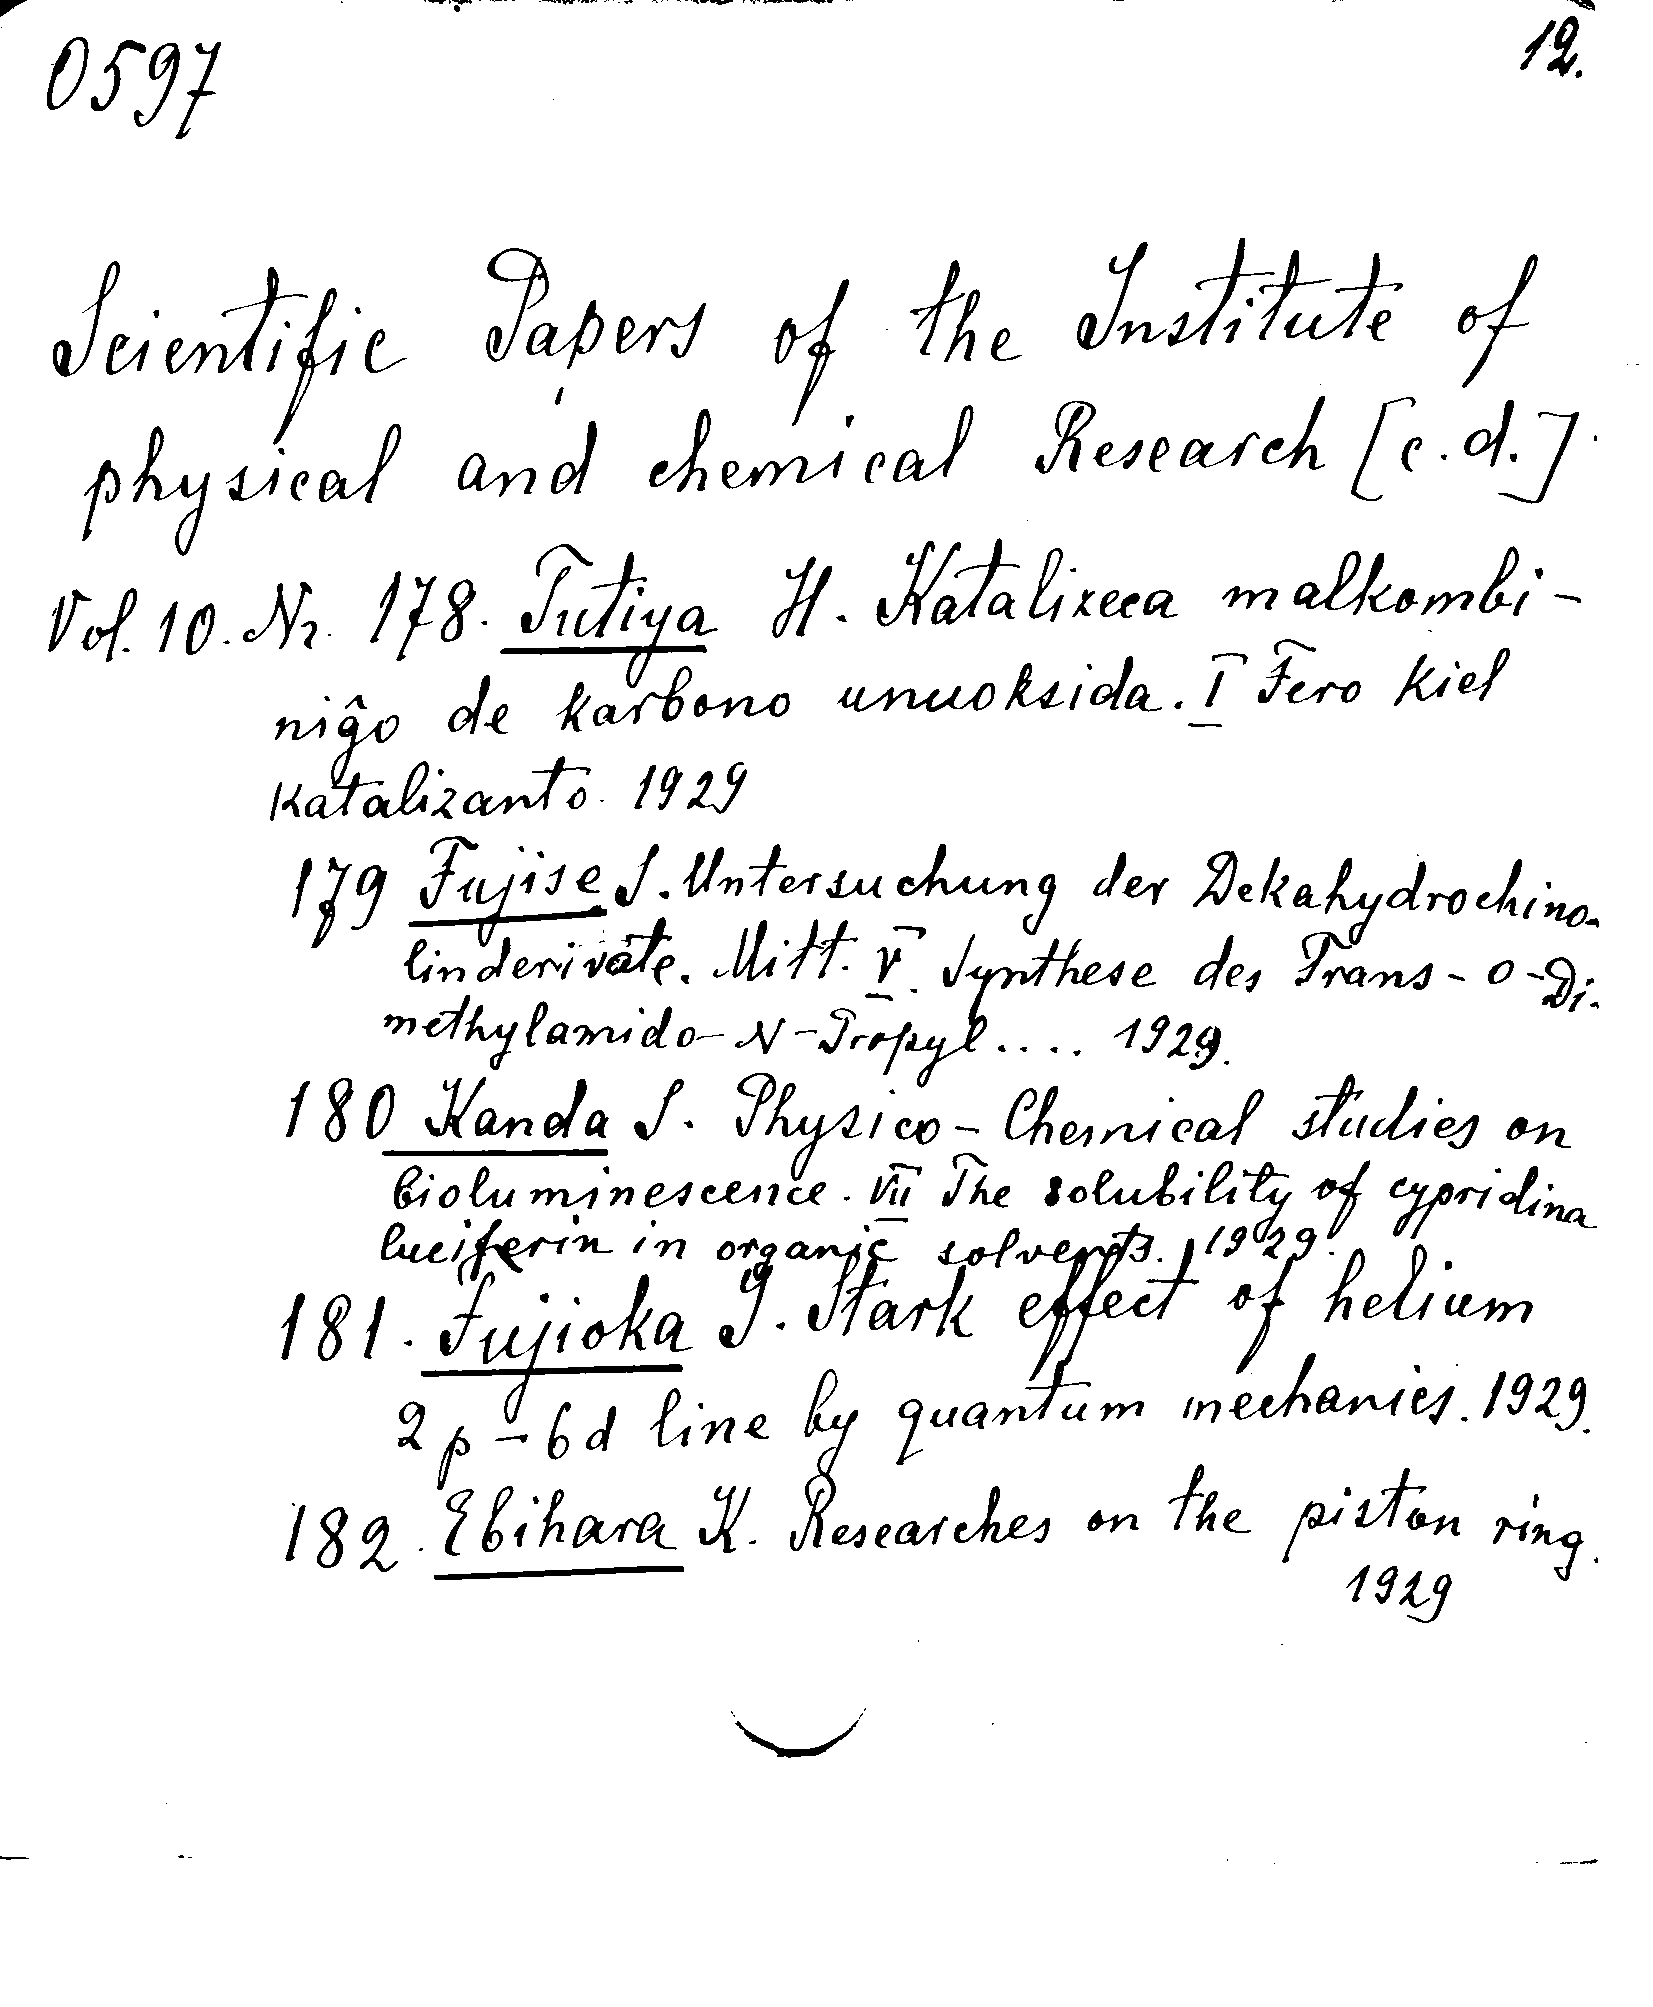 0597
12.
Scientific Papers of the Institute of
physical and chemical Research [c.d.]
Vol. 10. Nr. 178. Tutiya H. Katalizeca malkombi-
niĝo de karbono unuoksida. I Fero kiel
katalizanto. 1929
179 Fujise S. Untersuchung der Dekahydrochino-
linderivate. Mitt. V. Synthese des Trans-o-Di-
methylamido-N-Propyl.... 1929.
180 Kanda S. Physico-Chemical studies on
bioluminescence. VII The solubility of cypridina
luciferin in organic solvents. 1929.
181. Fujioka J. Stark effect of helium
2p-6d line by quantum mechanics. 1929.
182. Ebihara K. Researches on the piston ring.
1929